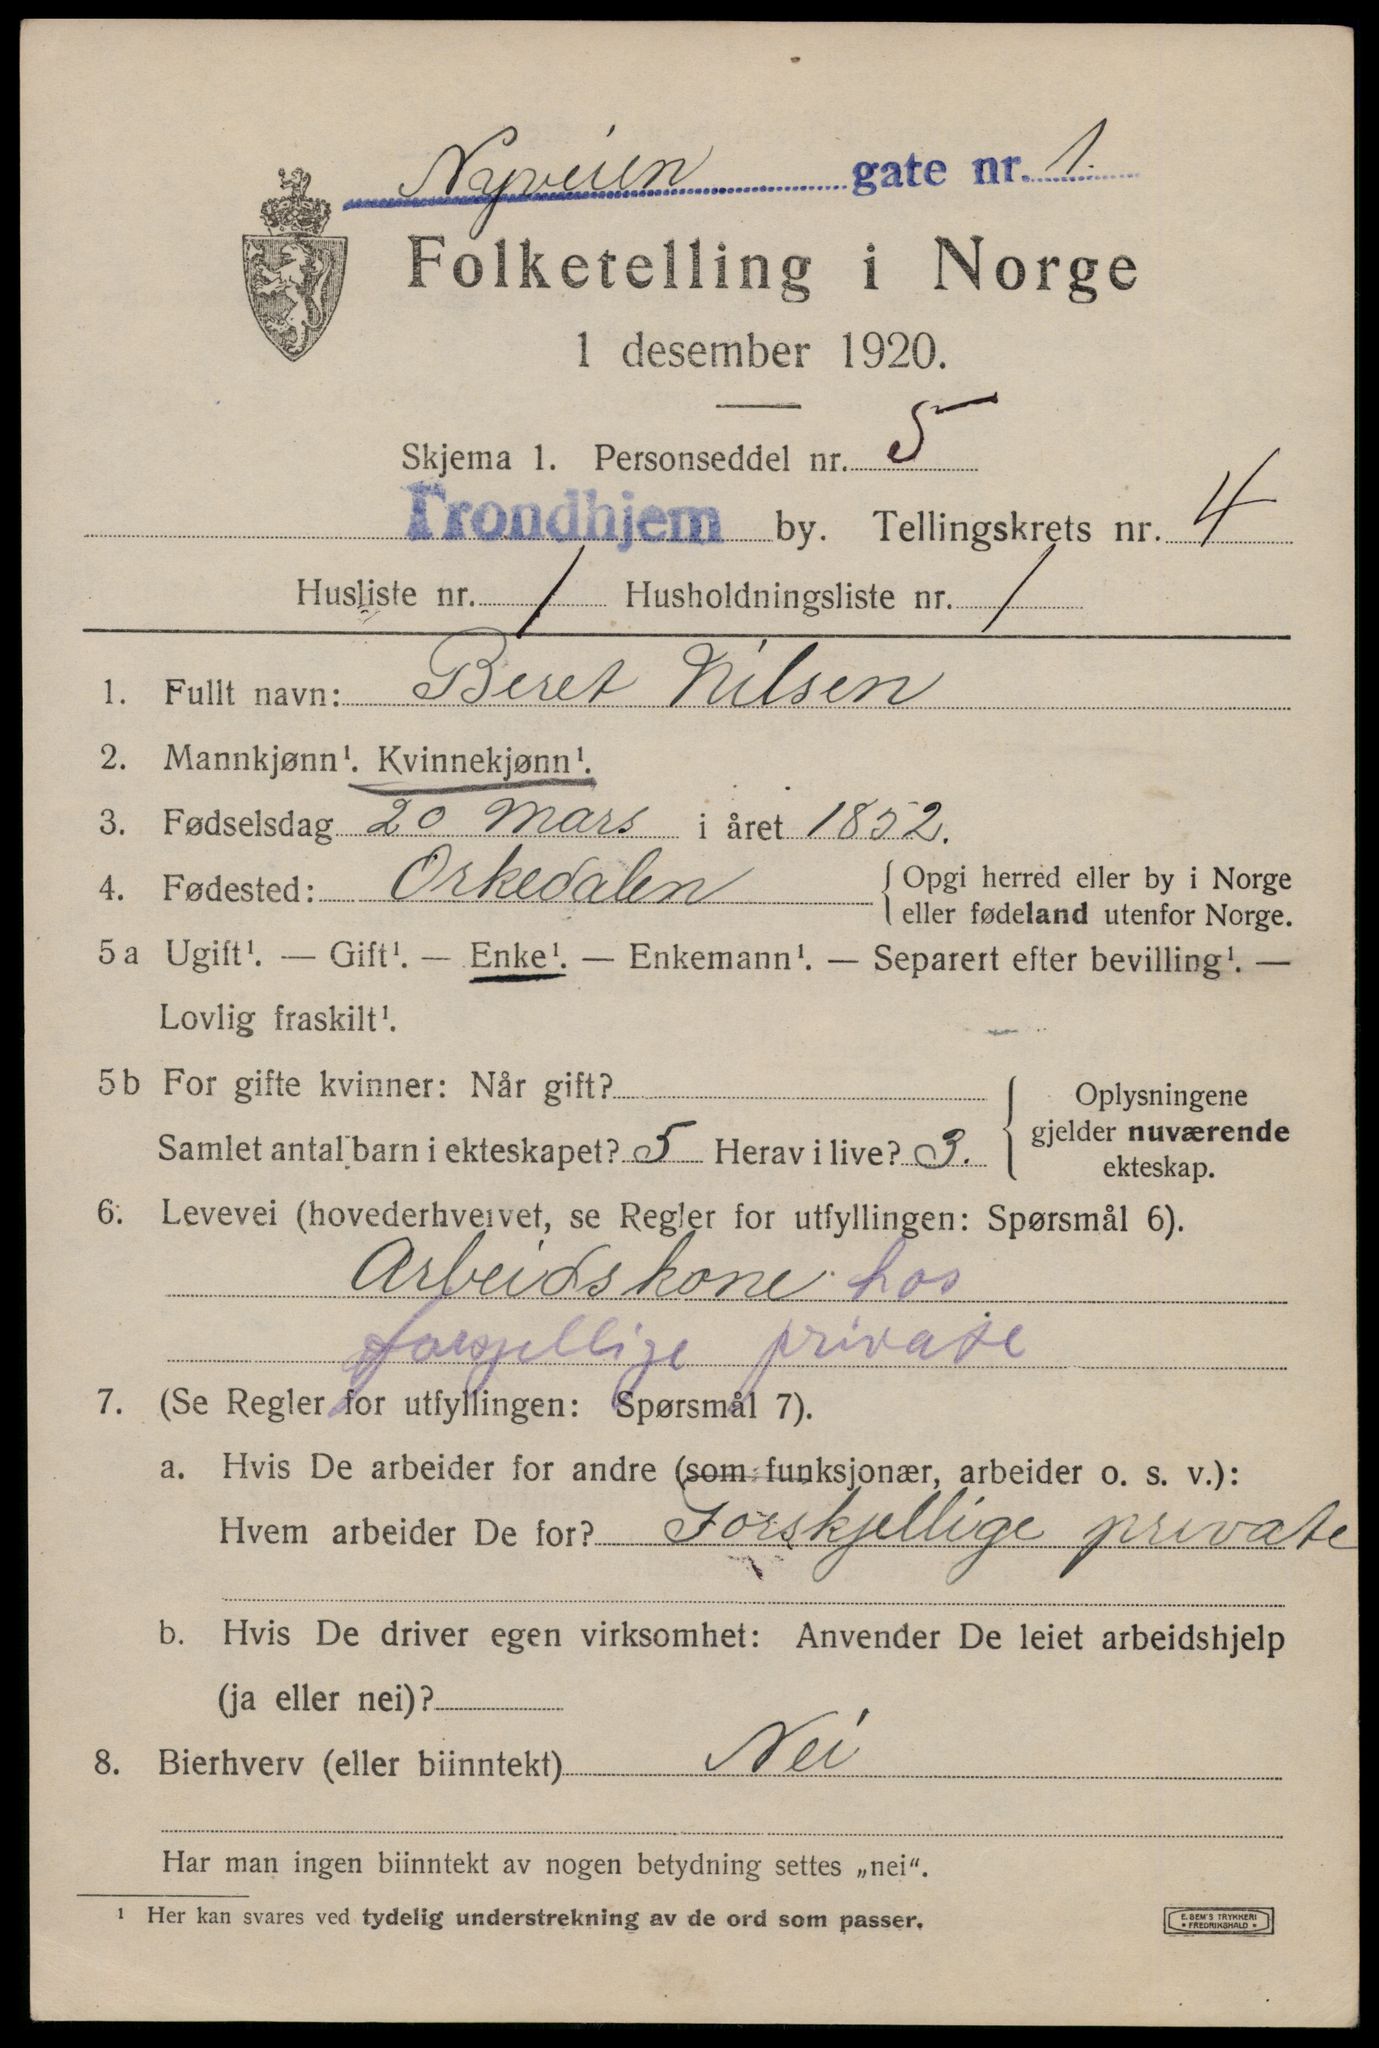 Nyveien gate nr. 1.
Folketelling i Norge
1 desember 1920.
Skjema 1. Personseddel nr. 5
Trondhjem by. Tellingskrets nr. 4
Husliste nr. 1 Husholdningsliste nr. 1
1. Fullt navn: Beret Nilsen
2. Mannkjønn¹. Kvinnekjønn¹.
3. Fødselsdag 20 Mars i året 1852.
4. Fødested: Orkedalen { Opgi herred eller by i Norge
eller fødeland utenfor Norge.
5 a Ugift¹. — Gift¹. — Enke¹. — Enkemann¹. — Separert efter bevilling¹. —
Lovlig fraskilt¹.
5 b For gifte kvinner: Når gift?
Samlet antal barn i ekteskapet? 5 Herav i live? 3.
Oplysningene
gjelder nuværende
ekteskap.
6. Levevei (hovederhvervet, se Regler for utfyllingen: Spørsmål 6).
Arbeidskone hos
forsjellige private
7. (Se Regler for utfyllingen: Spørsmål 7).
a. Hvis De arbeider for andre (som funksjonær, arbeider o. s. v.):
Hvem arbeider De for? Forskjellige private
b. Hvis De driver egen virksomhet: Anvender De leiet arbeidshjelp
(ja eller nei)?
8. Bierhverv (eller biinntekt) Nei
Har man ingen biinntekt av nogen betydning settes „nei“.
¹ Her kan svares ved tydelig understrekning av de ord som passer.
E. SEM'S TRYKKERI
* FREDRIKSHALD *